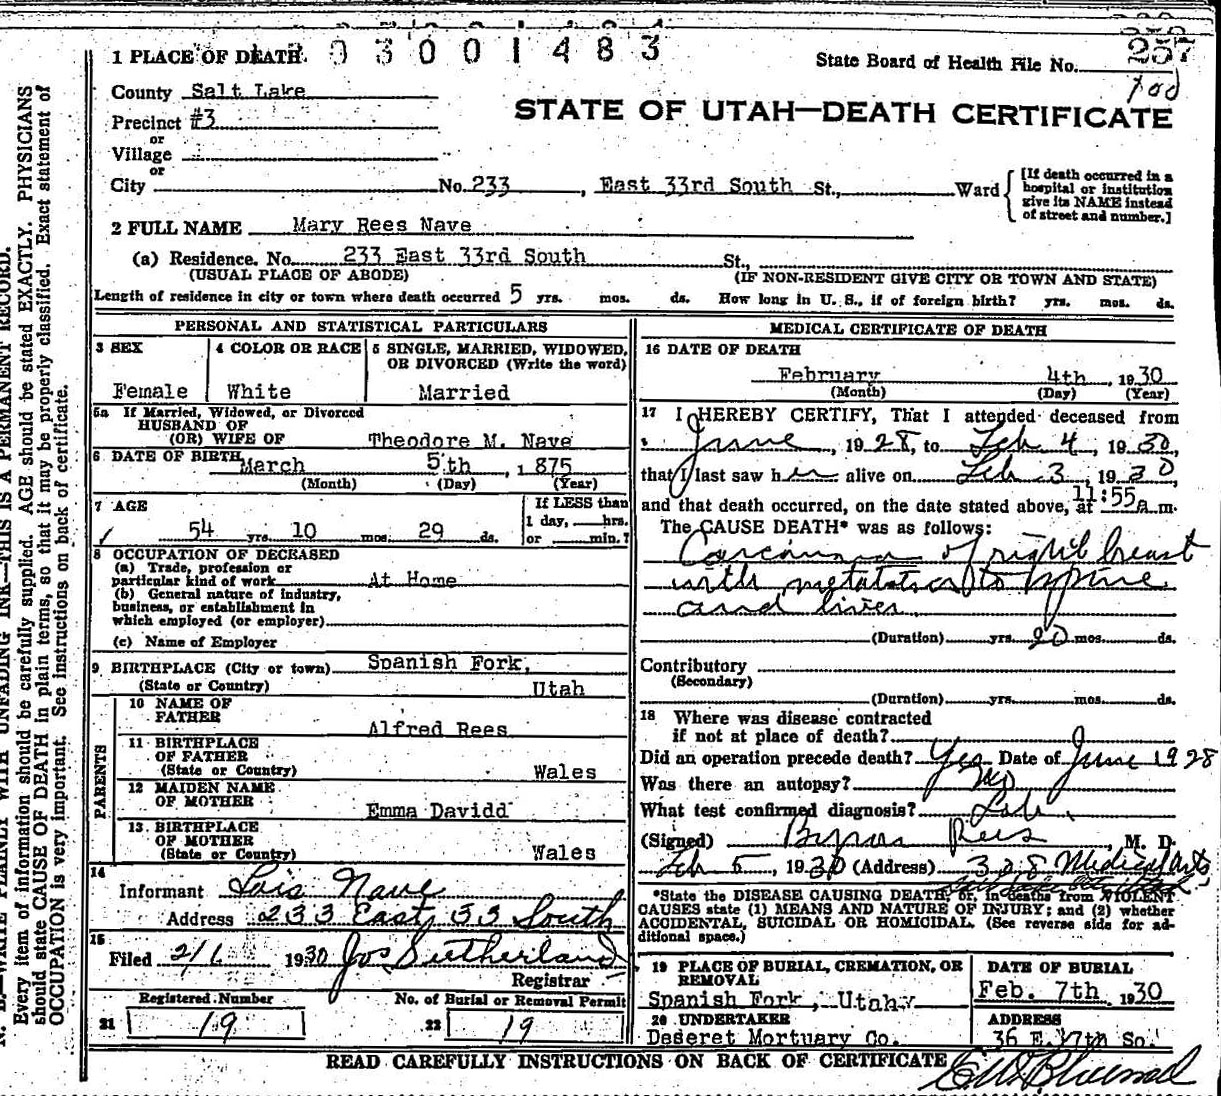 03001483
257
1 PLACE OF DEATH
State Board of Health File No.
County Salt Lake
STATE OF UTAH—DEATH CERTIFICATE
Precinct #3
or
Village
or
City No. 233, East 33rd South St., Ward
[If death occurred in a hospital or institution give its NAME instead of street and number.]
2 FULL NAME Mary Rees Nave
(a) Residence. No. 233 East 33rd South St.,
(USUAL PLACE OF ABODE) (IF NON-RESIDENT GIVE CITY OR TOWN AND STATE)
Length of residence in city or town where death occurred 5 yrs. mos. ds. How long in U. S., if of foreign birth? yrs. mos. ds.
PERSONAL AND STATISTICAL PARTICULARS
3 SEX
Female
4 COLOR OR RACE
White
5 SINGLE, MARRIED, WIDOWED,
OR DIVORCED (Write the word)
Married
5a If Married, Widowed, or Divorced
HUSBAND OF
(OR) WIFE OF Theodore M. Nave
6 DATE OF BIRTH March 5th, 1875
(Month) (Day) (Year)
7 AGE
54 yrs. 10 mos. 29 ds.
If LESS than
1 day, hrs.
or min.?
8 OCCUPATION OF DECEASED
(a) Trade, profession or
particular kind of work At Home
(b) General nature of industry,
business, or establishment in
which employed (or employer)
(c) Name of Employer
9 BIRTHPLACE (City or town) Spanish Fork,
(State or Country) Utah
PARENTS
10 NAME OF
FATHER Alfred Rees
11 BIRTHPLACE
OF FATHER
(State or Country) Wales
12 MAIDEN NAME
OF MOTHER Emma Davidd
13 BIRTHPLACE
OF MOTHER
(State or Country) Wales
14
Informant Lois Nave
Address 233 East 33 South
15
Filed 2/6 1930 Jos Sutherland
Registrar
Registered Number
21 19
No. of Burial or Removal Permit
22 19
MEDICAL CERTIFICATE OF DEATH
16 DATE OF DEATH
February 4th, 1930
(Month) (Day) (Year)
17 I HEREBY CERTIFY, That I attended deceased from
June, 1928, to Feb 4, 1930,
that I last saw her alive on Feb 3, 1930
and that death occurred, on the date stated above, at 11:55 a.m.
The CAUSE DEATH* was as follows:
Carcinoma of right breast
with metatstas to spine
and liver
(Duration) yrs. 20 mos. ds.
Contributory
(Secondary)
(Duration) yrs. mos. ds.
18 Where was disease contracted
if not at place of death?
Did an operation precede death? Yes Date of June 1928
Was there an autopsy? No
What test confirmed diagnosis? Lab.
(Signed) Byron Rees, M. D.
Feb 5, 1930 (Address) 328 Medical Arts
*State the DISEASE CAUSING DEATH, or, in deaths from VIOLENT
CAUSES state (1) MEANS AND NATURE OF INJURY; and (2) whether
ACCIDENTAL, SUICIDAL OR HOMICIDAL. (See reverse side for ad-
ditional space.)
19 PLACE OF BURIAL, CREMATION, OR
REMOVAL
Spanish Fork, Utah
DATE OF BURIAL
Feb. 7th, 1930
20 UNDERTAKER
Deseret Mortuary Co.
ADDRESS
36 E. 7th So.
READ CAREFULLY INSTRUCTIONS ON BACK OF CERTIFICATE
N. B.—WRITE PLAINLY WITH UNFADING INK—THIS IS A PERMANENT RECORD.
Every item of information should be carefully supplied. AGE should be stated EXACTLY. PHYSICIANS
should state CAUSE OF DEATH in plain terms, so that it may be properly classified. Exact statement of
OCCUPATION is very important. See instructions on back of certificate.